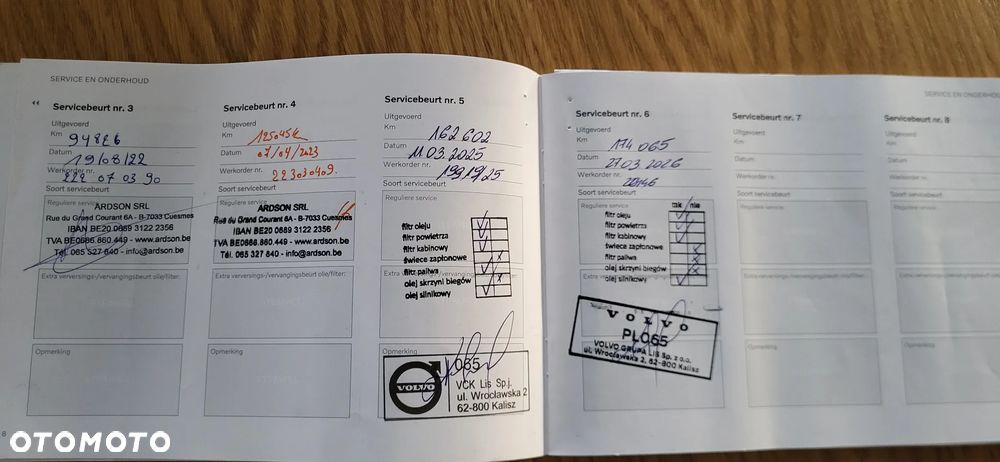 SERVICE EN ONDERHOUD
Servicebeurt nr. 3
Uitgevoerd
Km 94826
Datum 19/08/22
Werkorder nr. 222 07 03 90
Soort servicebeurt
Reguliere service
ARDSON SRL
Rue du Grand Courant 6A - B-7033 Cuesmes
IBAN BE20 0689 3122 2356
TVA BE0686.860.449 - www.ardson.be
Tél. 065 327 840 - info@ardson.be
Extra verversings-/vervangingsbeurt olie/filter:
Opmerking
Servicebeurt nr. 4
Uitgevoerd
Km 125045
Datum 07/04/2023
Werkorder nr. 223030409.
Soort servicebeurt
ARDSON SRL
Rue du Grand Courant 6A - B-7033 Cuesmes
IBAN BE20 0689 3122 2356
TVA BE0686.860.449 - www.ardson.be
Tél. 065 327 840 - info@ardson.be
Extra verversings-/vervangingsbeurt olie/filter:
Opmerking
Servicebeurt nr. 5
Uitgevoerd
Km 162602
Datum 11.03.2025
Werkorder nr.
Soort servicebeurt
Reguliere service
filtr oleju
filtr powietrza
filtr kabinowy
świece zapłonowe
filtr paliwa
olej skrzyni biegów
olej silnikowy
Extra verversings-/vervangingsbeurt olie/filter:
Opmerking
VOLVO
065
VCK Lis Sp.j.
ul. Wrocławska 2
62-800 Kalisz
SERVICE EN ONDERHOUD
Servicebeurt nr. 6
Uitgevoerd
Km 174065
Datum 27.03.2026
Werkorder nr.
Soort servicebeurt
Reguliere service
tak nie
filtr oleju
filtr powietrza
filtr kabinowy
świece zapłonowe
filtr paliwa
olej skrzyni biegów
olej silnikowy
VOLVO
PL065
VOLVO GRUPA LIS Sp. z o.o.
ul. Wrocławska 2, 62-800 Kalisz
Servicebeurt nr. 7
Uitgevoerd
Km
Datum
Werkorder nr.
Soort servicebeurt
Reguliere service
Opmerking
Servicebeurt nr. 8
Uitgevoerd
Km
Datum
Werkorder nr.
Soort servicebeurt
Reguliere service
Opmerking
8
OTOMOTO